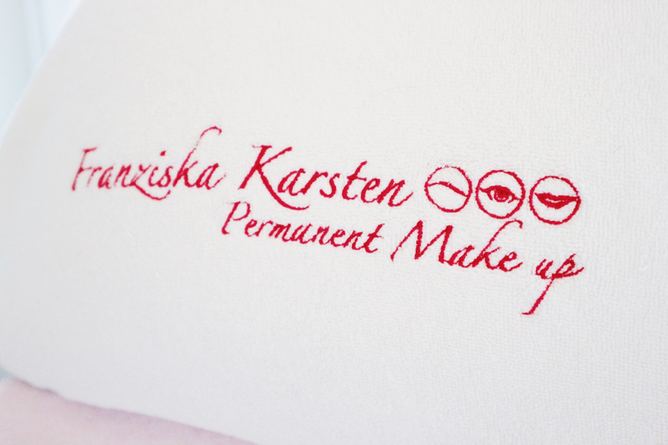 Franziska Karsten
Permanent Make up